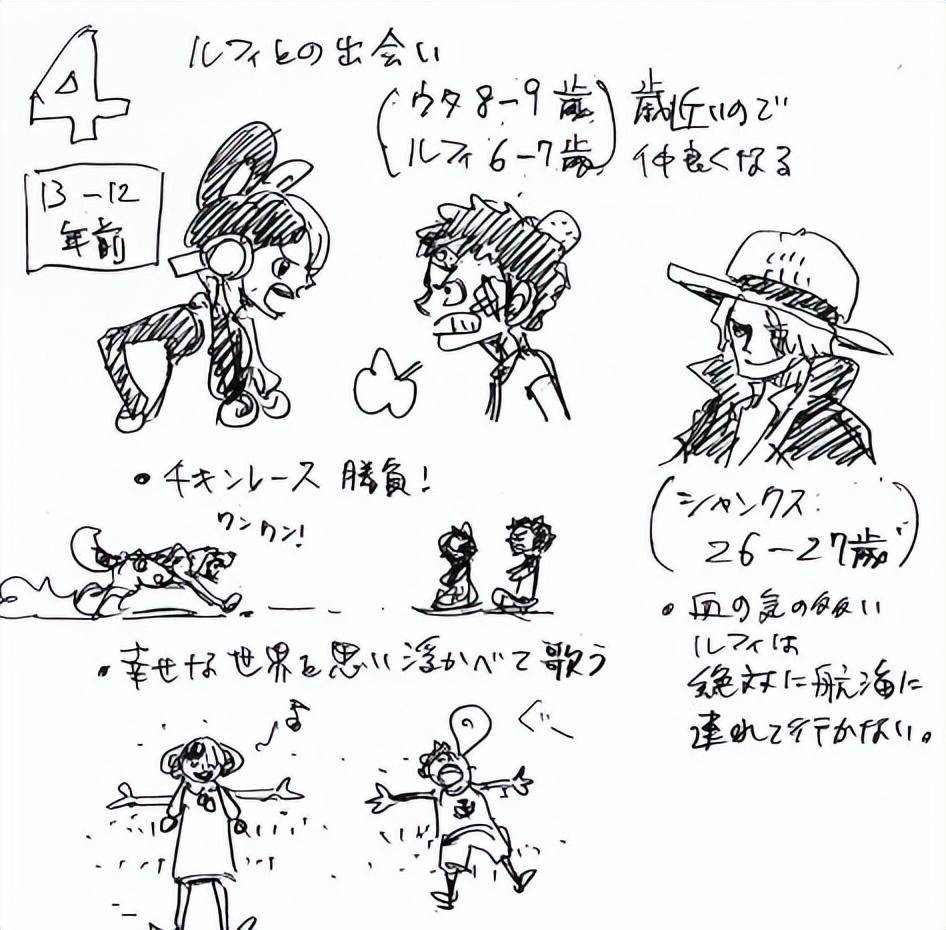 4
ルフィとの出会い
(ウタ8-9歳
ルフィ6-7歳)
歳近いので
仲良くなる
13-12
年前
・チキンレース 勝負!
ワンワン!
(シャンクス:
26-27歳)
・血の気の多い
ルフィは
絶対に航海に
連れて行かない。
・幸せな世界を思い浮かべて歌う
♪
ぐー